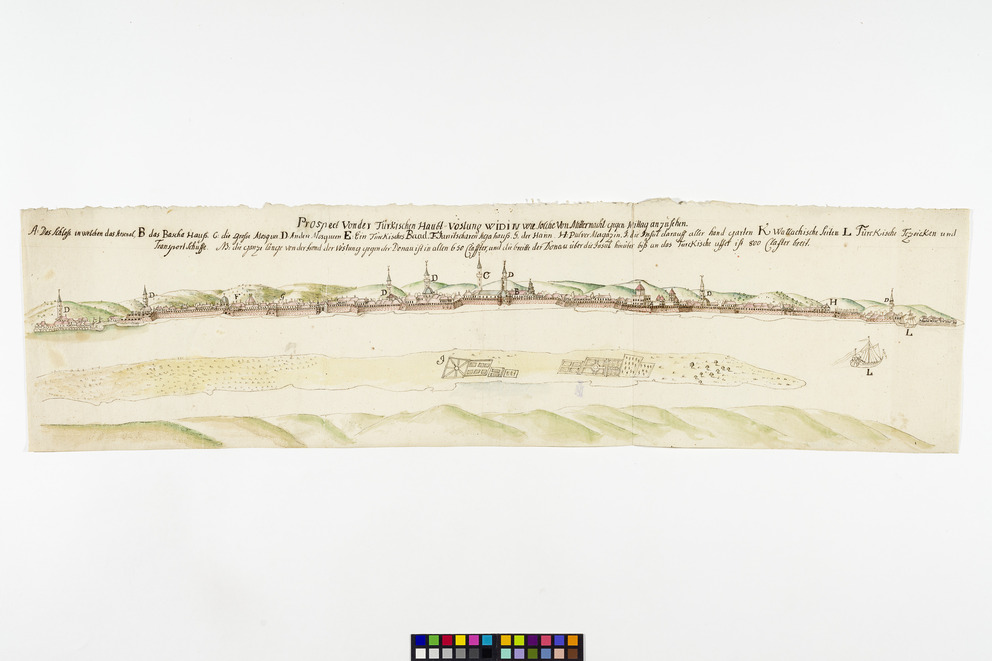 Prospect Von der Türkischen Haubt-Vöstung WIDIN wie solche Von Mitternacht gegen Mittag anzusehen.
A. Das Schloß in welchen das Arsenal B das Bacha Hauß. C. die große Mosquee D. Andere Mosqueen E. Ein Türkisches Baad. F. Janitscharen hauß. G. der Hann. H. Pulver Magazin. J. die Insul darauff aller hand garten K Wallachische Seiten L Türckische Tzeicken und
Transport Schiffe. NB. die gantze länge von der fronte der Vöstung gegen der Donau ist in allen 650 Claffter, und die breite der Donau über die Insul hinüber biß an das Türkische uffer ist 800 Claffter breit.
D D F D D C B D D H D L
J
L